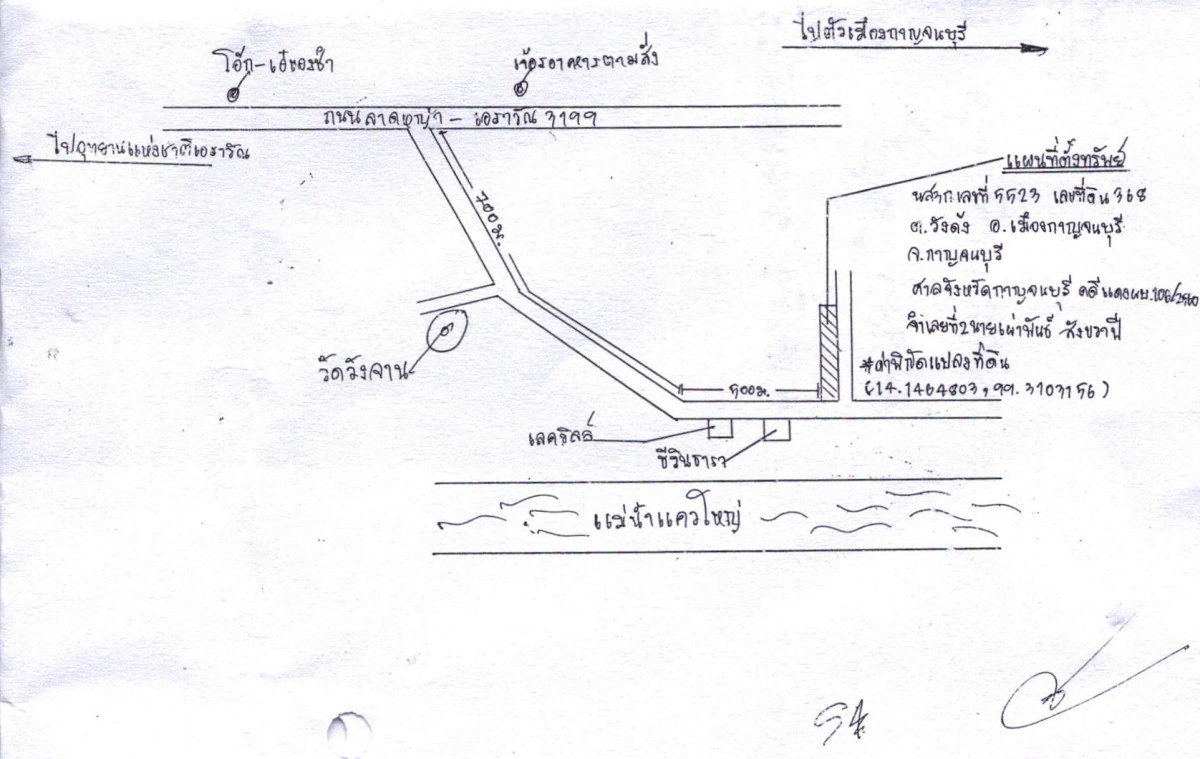 ไปตัวเมืองกาญจนบุรี
โอ๊ก-เอ๋ของชำ
เจ๊อรอาหารตามสั่ง
ถนนลาดหญ้า - เอราวัณ 3199
ไปอุทยานแห่งชาติเอราวัณ
แผนที่ตั้งทรัพย์
700ม.
นส3ก.เลขที่ 5523 เลขที่ดิน 368
ต.วังด้ง อ.เมืองกาญจนบุรี
จ.กาญจนบุรี
ศาลจังหวัดกาญจนบุรี คดีแดงผบ.106/2560
จำเลยที่2นายเผ่าพันธ์
*ค่าพิกัดแปลงที่ดิน
(14.1464803,99.3103156)
วัดวังจาน
500ม.
เลคฮิลล์
ชีวินธารา
แม่น้ำแควใหญ่